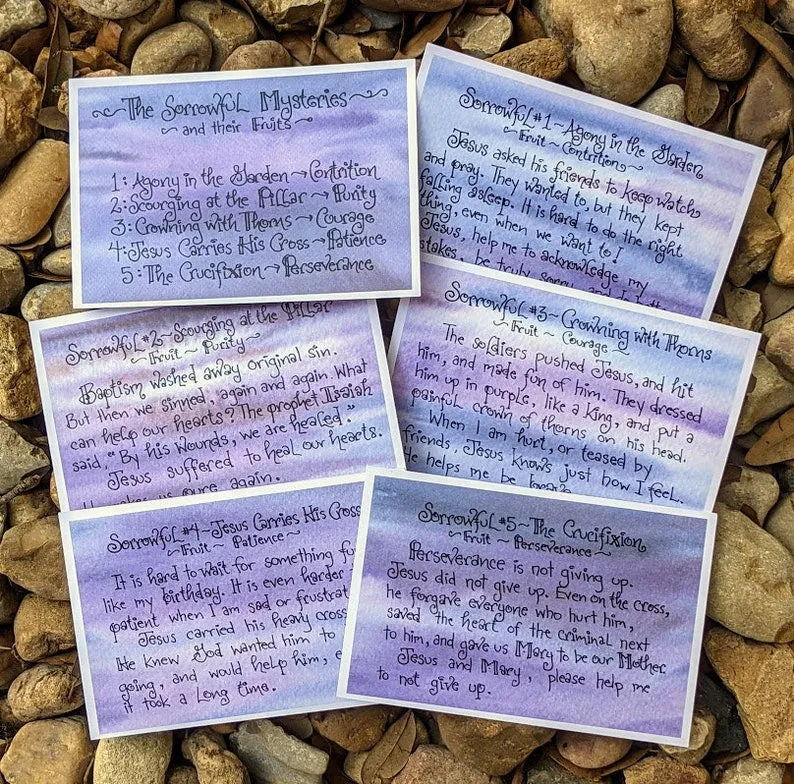 The Sorrowful Mysteries
and their Fruits
1: Agony in the Garden → Contrition
2: Scourging at the Pillar → Purity
3: Crowning with Thorns → Courage
4: Jesus Carries His Cross → Patience
5: The Crucifixion → Perseverance
Sorrowful #1 ~ Agony in the Garden
~ Fruit ~ Contrition ~
Jesus asked his friends to keep watch
and pray. They wanted to, but they kept
falling asleep. It is hard to do the right
thing, even when we want to!
Jesus, help me to acknowledge my
stakes, be truly sorry, and
Sorrowful #2 ~ Scourging at the Pillar
~ Fruit ~ Purity ~
Baptism washed away original sin.
But then we sinned, again and again. What
can help our hearts? The prophet Isaiah
said, "By his wounds, we are healed."
Jesus suffered to heal our hearts.
pure again.
Sorrowful #3 ~ Crowning with Thorns
~ Fruit ~ Courage ~
The soldiers pushed Jesus, and hit
him, and made fun of him. They dressed
him up in purple, like a King, and put a
painful crown of thorns on his head.
When I am hurt, or teased by
friends, Jesus knows just how I feel.
He helps me be brave
Sorrowful #4 ~ Jesus Carries His Cross
~ Fruit ~ Patience ~
It is hard to wait for something fu
like my birthday. It is even harder
patient when I am sad or frustrat
Jesus carried his heavy cross
He knew God wanted him to
going, and would help him, e
it took a long time.
Sorrowful #5 ~ The Crucifixion
~ Fruit ~ Perseverance ~
Perseverance is not giving up.
Jesus did not give up. Even on the cross,
he forgave everyone who hurt him,
saved the heart of the criminal next
to him, and gave us Mary to be our Mother.
Jesus and Mary, please help me
to not give up.